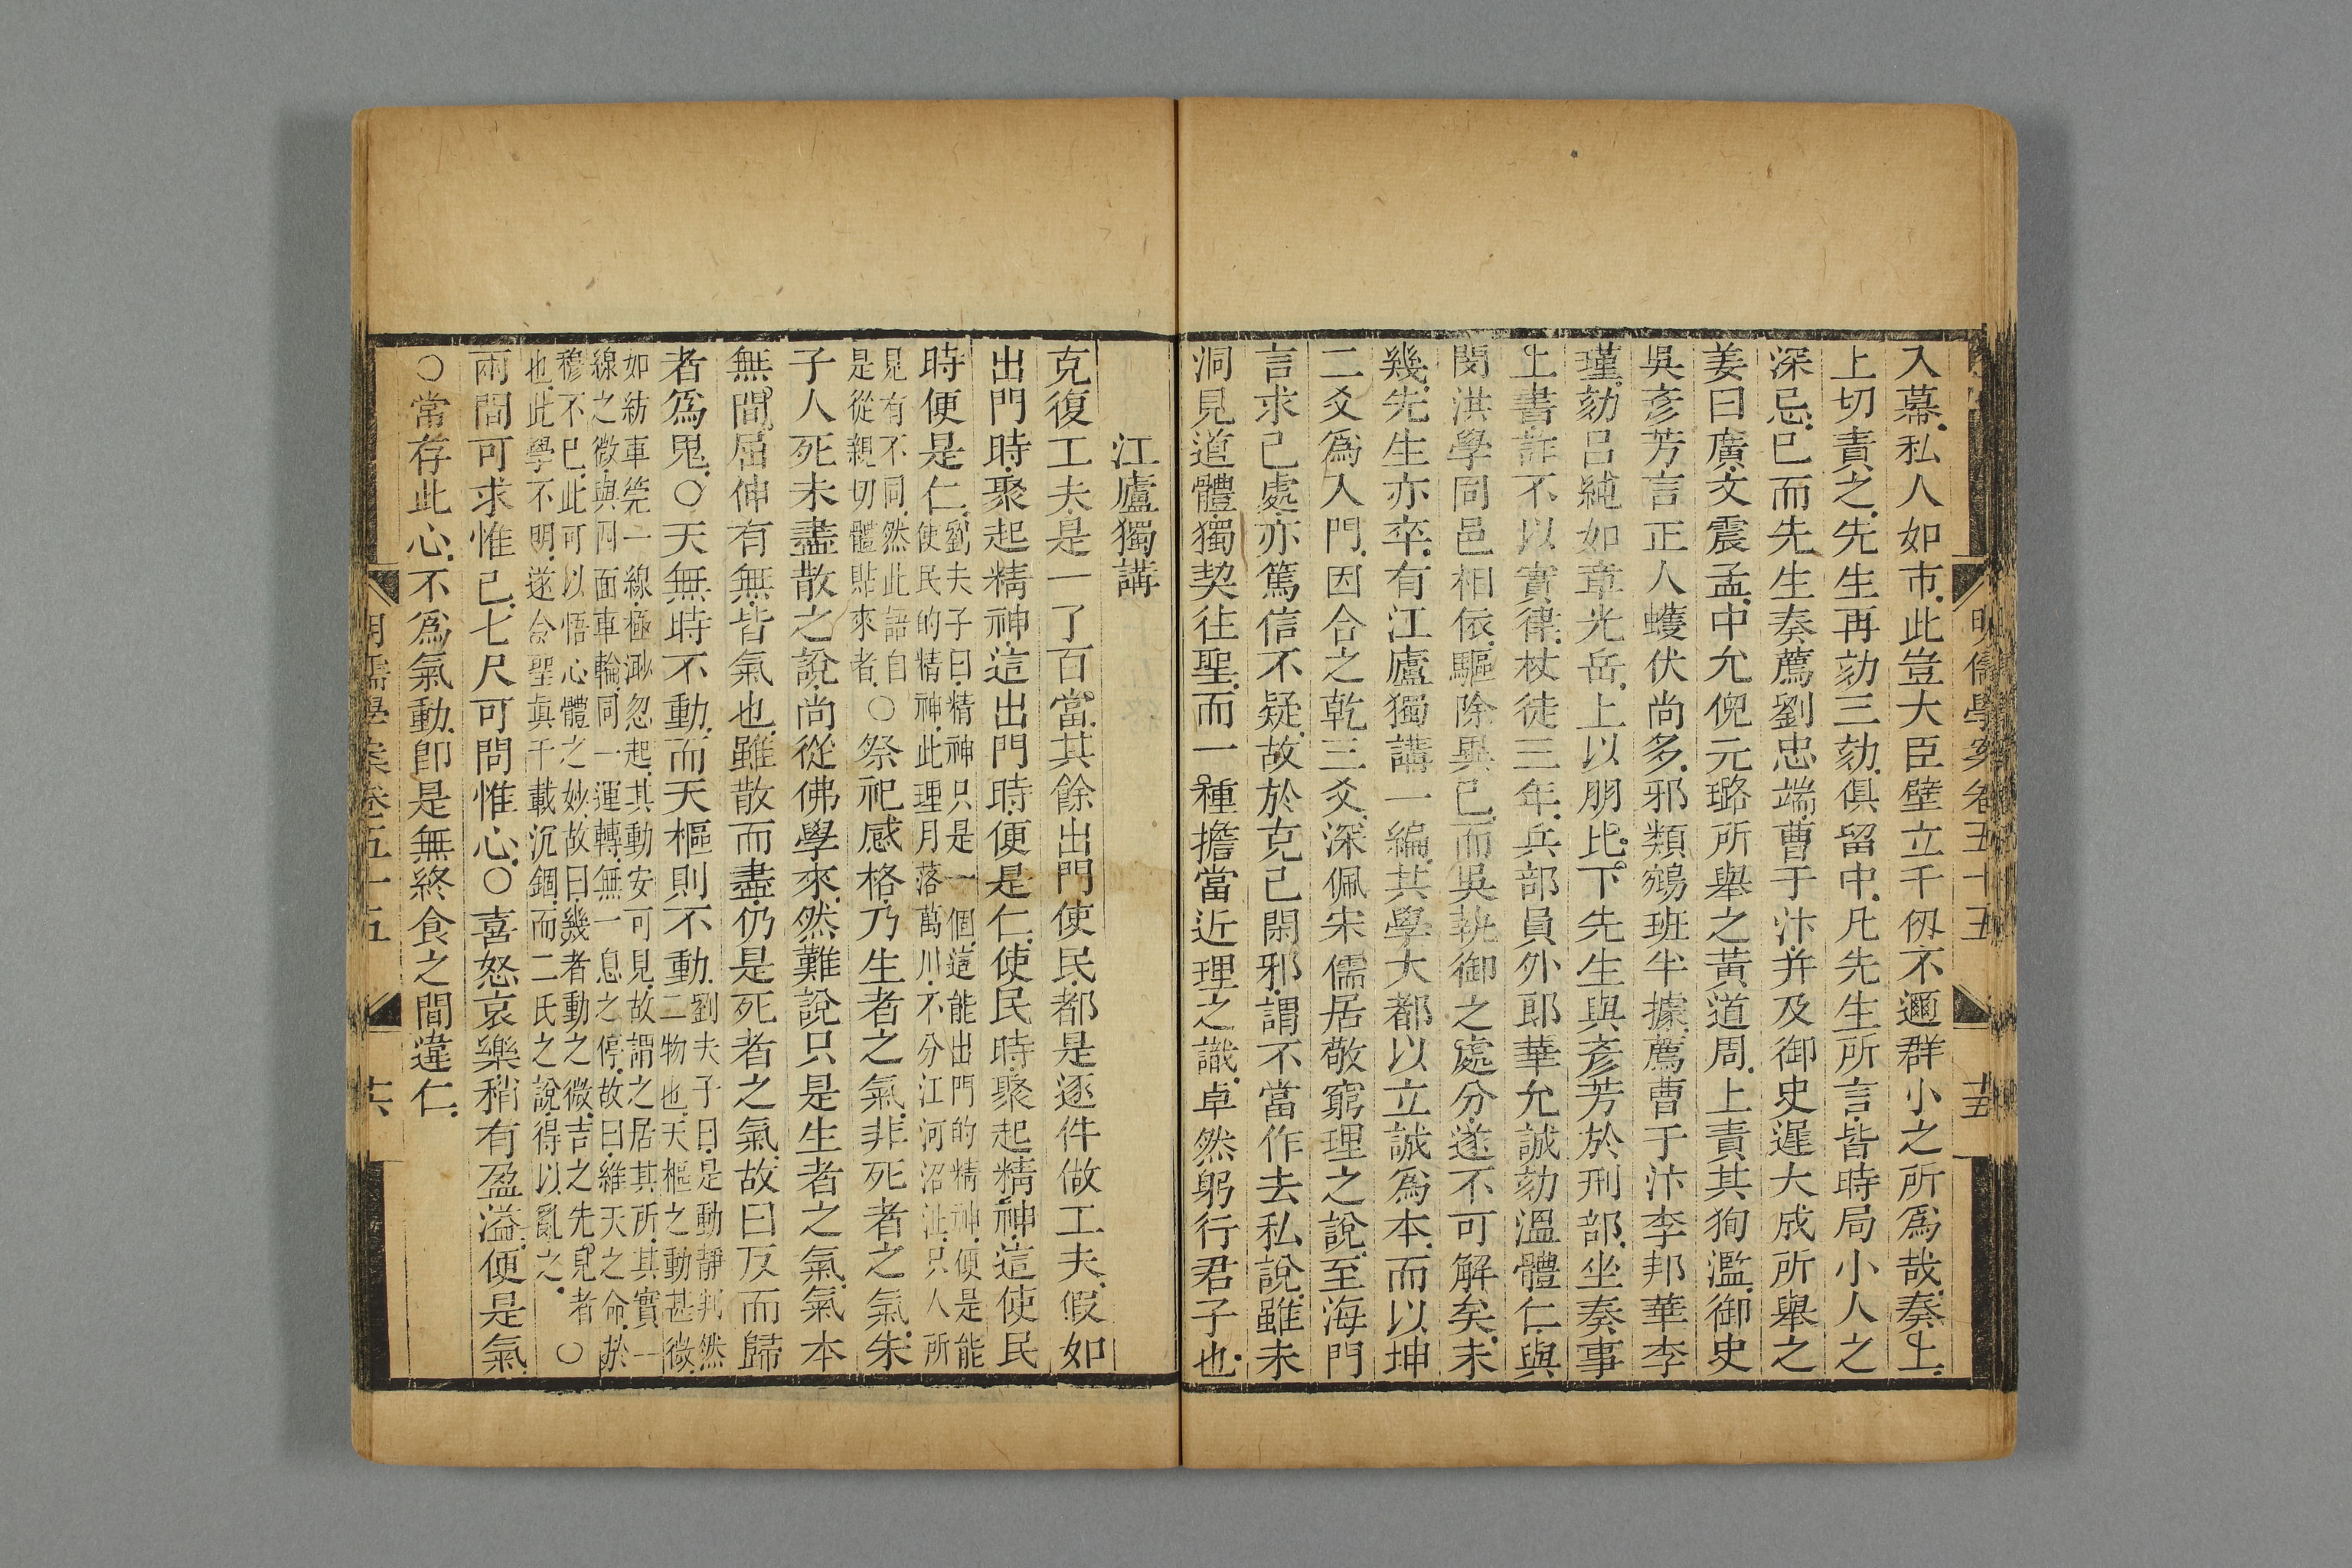 明儒學案卷五十五
十五
入幕私人如市此豈大臣壁立千仭不邇群小之所爲哉奏上
上切責之先生再劾三劾俱留中凡先生所言皆時局小人之
深忌已而先生奏薦劉忠端曹于汴并及御史遲大成所舉之
姜曰廣文震孟中允倪元璐所舉之黃道周上責其狥濫御史
吳彥芳言正人蠖伏尚多邪類鵷班半據薦曹于汴李邦華李
瑾劾呂純如章光岳上以朋比下先生與彥芳於刑部坐奏事
上書詐不以實律杖徒三年兵部員外郎華允誠劾溫體仁與
閔洪學同邑相依驅除異已而吳執御之處分遂不可解矣未
幾先生亦卒有江廬獨講一編其學大都以立誠爲本而以坤
二爻爲入門因合之乾三爻深佩宋儒居敬窮理之說至海門
言求已處亦篤信不疑故於克已閑邪謂不當作去私說雖未
洞見道體獨契往聖而一種擔當近理之識卓然躬行君子也
江廬獨講
克復工夫是一了百當其餘出門使民都是逐件做工夫假如
出門時聚起精神這出門時便是仁使民時聚起精神這使民
時便是仁
劉夫子曰精神只是一個這能出門的精神便是能
使民的精神此理月落萬川不分江河沼沚只人所
見有不同然此語自
是從親切體貼來者
○祭祀感格乃生者之氣非死者之氣朱
子人死未盡散之說尚從佛學來然難說只是生者之氣氣本
無間屈伸有無皆氣也雖散而盡仍是死者之氣故曰反而歸
者爲鬼○天無時不動而天樞則不動
劉夫子曰是動靜判然
二物也天樞之動甚微
如紡車筦一線極渺忽起其動安可見故謂之居其所其實一
線之微與四面車輪同一運轉無一息之停故曰維天之命於
穆不已此可以悟心體之妙故曰幾者動之微吉之先見者
也此學不明遂令聖眞千載沉錮而二氏之說得以亂之
○
兩間可求惟已七尺可問惟心○喜怒哀樂稍有盈溢便是氣
○常存此心不爲氣動卽是無終食之間違仁
明儒學案卷五十五
十六